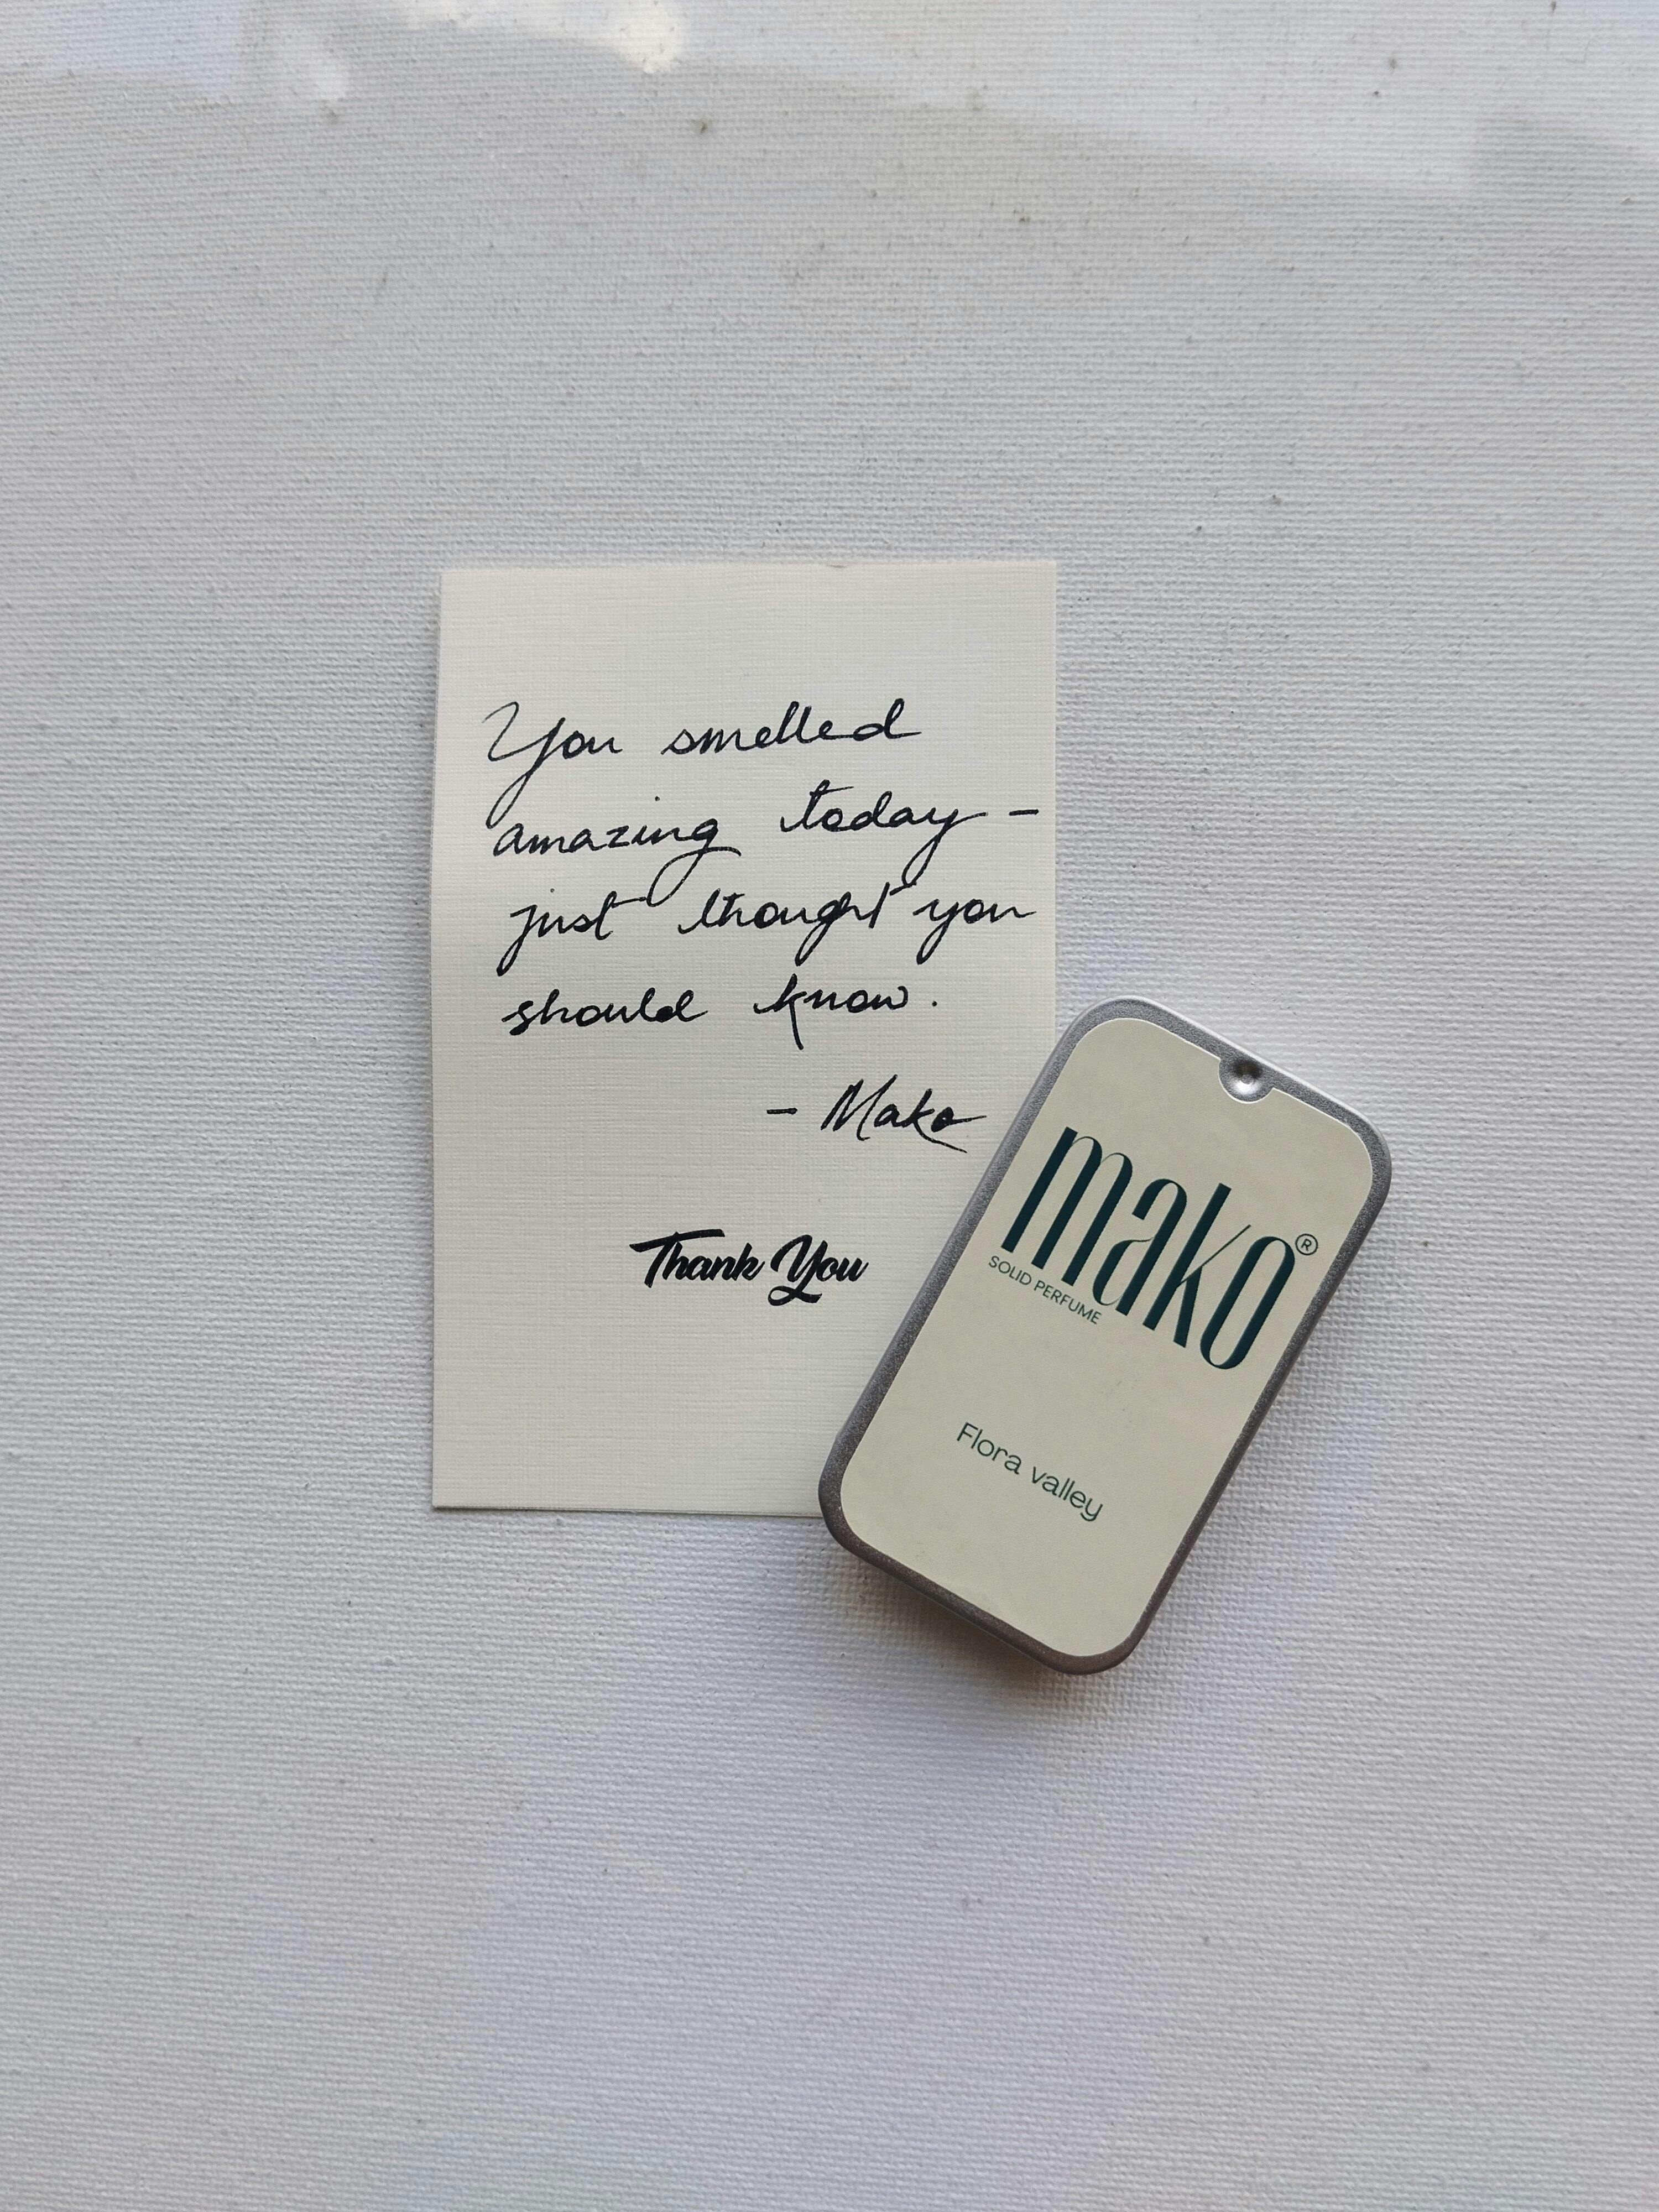 You smelled
amazing today -
just thought you
should know.
- Mako
Thank You
mako®
SOLID PERFUME
Flora valley